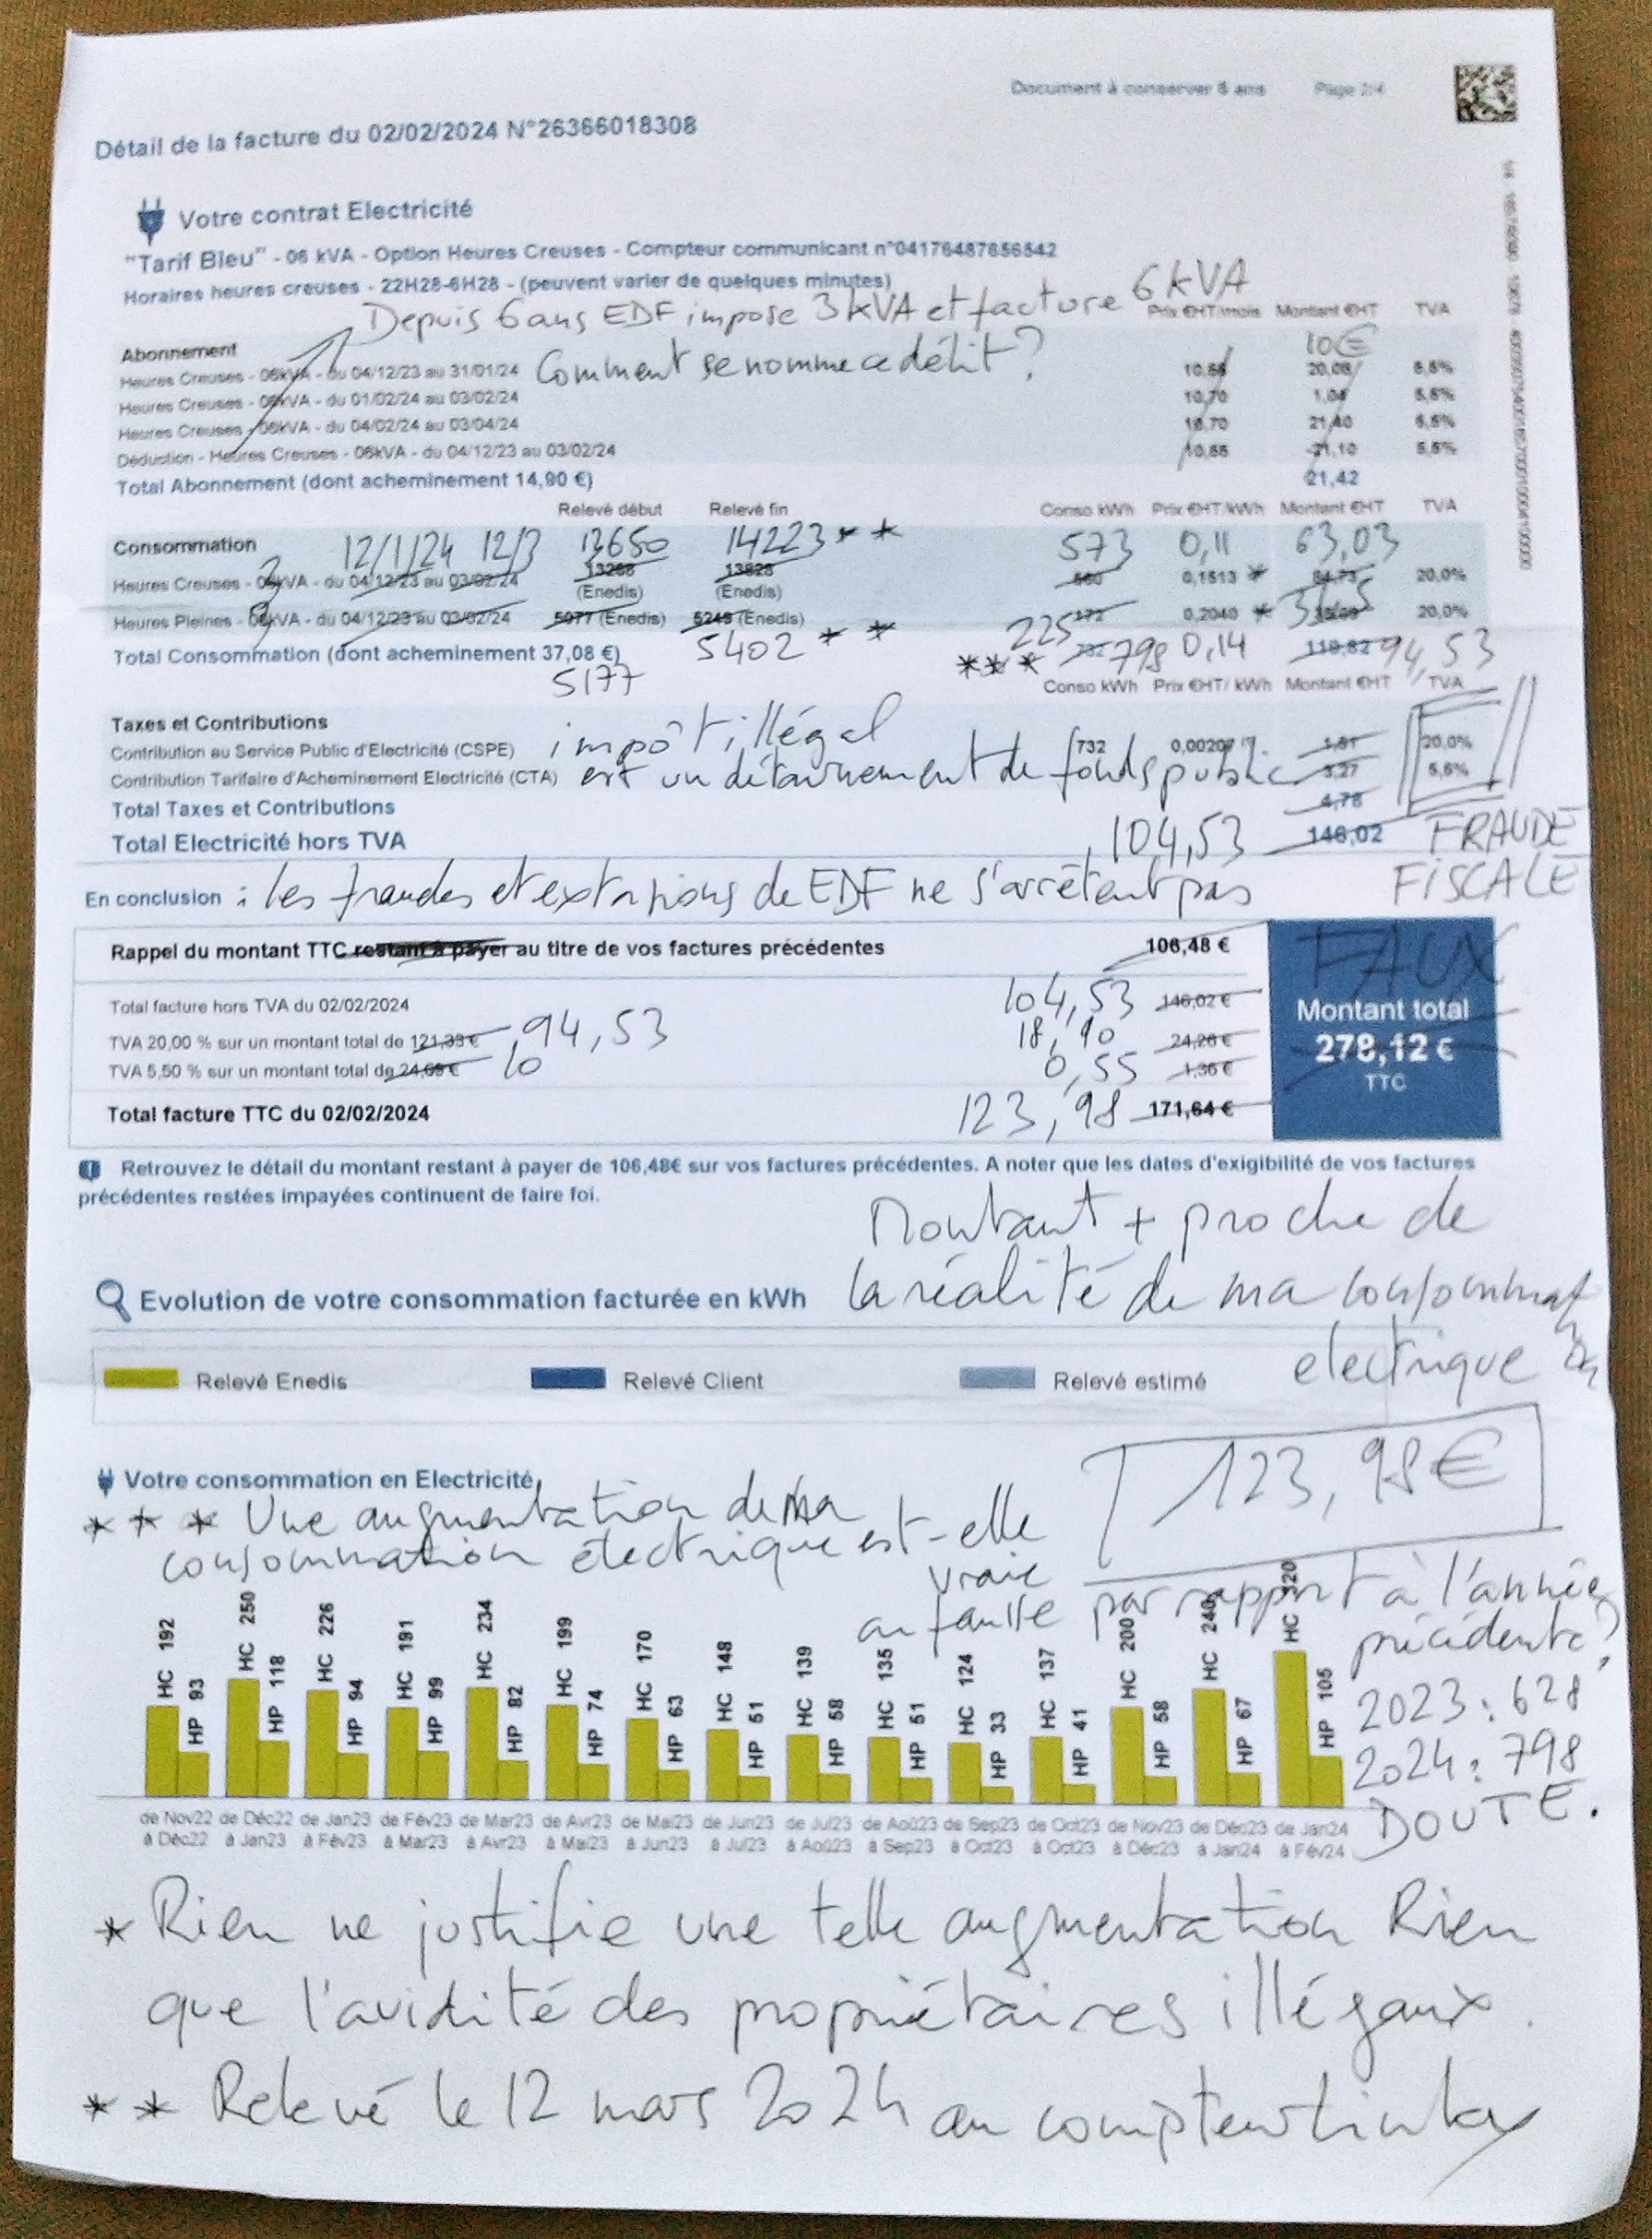 Document à conserver 5 ans Page 2/4
Détail de la facture du 02/02/2024 N°26366018308
Votre contrat Electricité
"Tarif Bleu" - 06 kVA - Option Heures Creuses - Compteur communicant n°04176487656542
Horaires heures creuses - 22H28-6H28 - (peuvent varier de quelques minutes)
Depuis 6 ans EDF impose 3 kVA et facture 6 kVA
Prix €HT/mois Montant €HT TVA
Abonnement 10€
Heures Creuses - 06kVA - du 04/12/23 au 31/01/24 Comment se nomme ce délit ? 10,55 20,06 5,5%
Heures Creuses - 06kVA - du 01/02/24 au 03/02/24 10,70 1,06 5,5%
Heures Creuses - 06kVA - du 04/02/24 au 03/04/24 10,70 21,40 5,5%
Déduction - Heures Creuses - 06kVA - du 04/12/23 au 03/02/24 10,55 -21,10 5,5%
Total Abonnement (dont acheminement 14,90 €) 21,42
Relevé début Relevé fin Conso kWh Prix €HT/kWh Montant €HT TVA
Consommation 12/1/24 12/3 13650 14223 ** 573 0,11 63,03
Heures Creuses - 06kVA - du 04/12/23 au 03/02/24 13268 13828 560 0,1513 * 84,73 20,0%
(Enedis) (Enedis)
Heures Pleines - 06kVA - du 04/12/23 au 03/02/24 5077 (Enedis) 5249 (Enedis) 225 172 0,2040 * 20,0%
Total Consommation (dont acheminement 37,08 €) 5402 ** *** 732 798 0,14 119,82 94,53
5177
Conso kWh Prix €HT/ kWh Montant €HT TVA
Taxes et Contributions
Contribution au Service Public d'Electricité (CSPE) impôt illégal 732 0,00207 1,51 20,0%
Contribution Tarifaire d'Acheminement Electricité (CTA) est un détournement de fonds public 3,27 5,5%
Total Taxes et Contributions 4,78
Total Electricité hors TVA 104,53 146,02 FRAUDE
FISCALE
En conclusion : Les fraudes et extorsions de EDF ne s'arrêtent pas
Rappel du montant TTC restant à payer au titre de vos factures précédentes 106,48 €
FAUX
Total facture hors TVA du 02/02/2024 104,53 146,02 €
Montant total
TVA 20,00 % sur un montant total de 121,33 € 94,53 18,90 24,26 €
278,12 €
TVA 5,50 % sur un montant total de 24,69 € 10 0,55 1,36 €
TTC
Total facture TTC du 02/02/2024 123,98 171,64 €
Retrouvez le détail du montant restant à payer de 106,48€ sur vos factures précédentes. A noter que les dates d'exigibilité de vos factures
précédentes restées impayées continuent de faire foi.
Montant + proche de
la réalité de ma consommation
électrique
Evolution de votre consommation facturée en kWh
Relevé Enedis Relevé Client Relevé estimé
123,98€
Votre consommation en Electricité
*** Une augmentation de ma
consommation électrique est-elle
vraie
ou fausse par rapport à l'année
précédente ?
2023 : 628
2024 : 798
DOUTE.
HC 192 HP 93 HC 250 HP 118 HC 226 HP 94 HC 191 HP 99 HC 234 HP 82 HC 199 HP 74 HC 170 HP 63 HC 148 HP 51 HC 139 HP 58 HC 135 HP 51 HC 124 HP 33 HC 137 HP 41 HC 200 HP 58 HC 240 HP 67 HC 320 HP 105
de Nov22 de Déc22 de Jan23 de Fév23 de Mar23 de Avr23 de Mai23 de Jun23 de Jul23 de Aoû23 de Sep23 de Oct23 de Nov23 de Déc23 de Jan24
à Déc22 à Jan23 à Fév23 à Mar23 à Avr23 à Mai23 à Jun23 à Jul23 à Aoû23 à Sep23 à Oct23 à Oct23 à Déc23 à Jan24 à Fév24
* Rien ne justifie une telle augmentation Rien
que l'avidité des propriétaires illégaux.
** Relevé le 12 mars 2024 au compteur linky